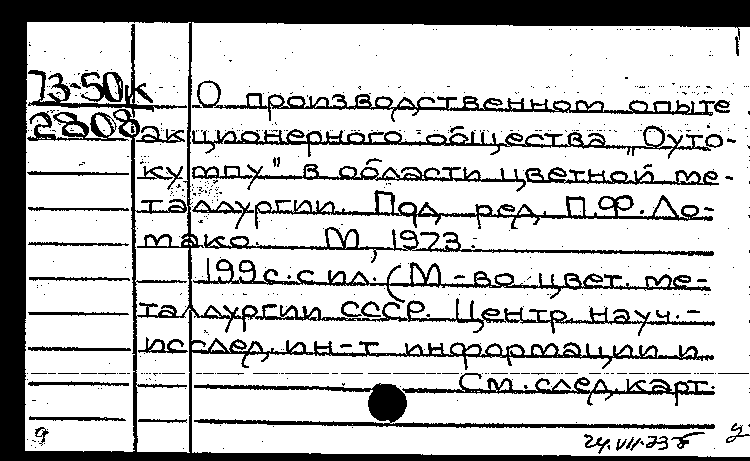 73-50к О производственном опыте
2808 акционерного общества „Оуто-
кумпу" в области цветной ме-
таллургии. Под ред. П.Ф. Ло-
мако. М., 1973.
199 с. с ил. (М-во цвет. ме-
таллургии СССР. Центр. науч.-
исслед. ин-т информации и
См. след. карт.
9
24.VII.73